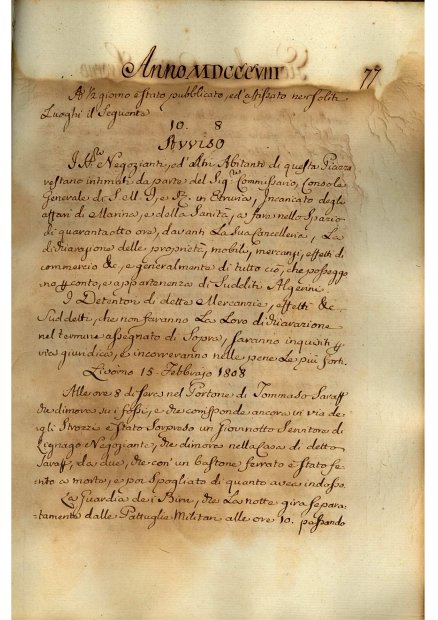 Anno MDCCCVIII
77
A ½ giorno è stato pubblicato, ed affissato nei soliti
Luoghi il Seguente
10. 8
AVVISO
I SS.ri Negozianti, ed altri Abitanti di questa Piazza
restano intimati da parte del Sig.re Commissario, Console
Generale di S. M. e in Etruria, Incaricato degli
affari di Marina, e della Sanità, a fare nello Spazio
di quarantaotto ore, davanti La Sua Cancelleria, La
dichiarazione delle proprietà, mobili, mercanzi, effetti di
commercio &c, e generalmente di tutto ciò, che possegg-
no conto, e appartenenza di Sudditi Algerini.
I Detentori di dette Mercanzie, effetti &c
Suddetti, che non faranno La Loro dichiarazione
nel termine assegnato di Sopra, saranno inquisiti
via giuridica, e incorreranno nelle pene Le più forti.
Livorno 15. Febbrajo 1808
Alle ore 8 di sera nel Portone di Tommaso
che dimora su i fossi, e che corrisponde ancora in via de-
gli è Stato Sorpreso un Giovinotto Servitore di
Legnago Negoziante, che dimora nella Casa di detto
da due, che con un bastone ferrato è stato fe-
rito a morte, e poi spogliato di quanto avea indosso.
La Guardia dei Birri, che La notte gira separa-
tamente dalle Pattuglie Militari alle ore 10. passando